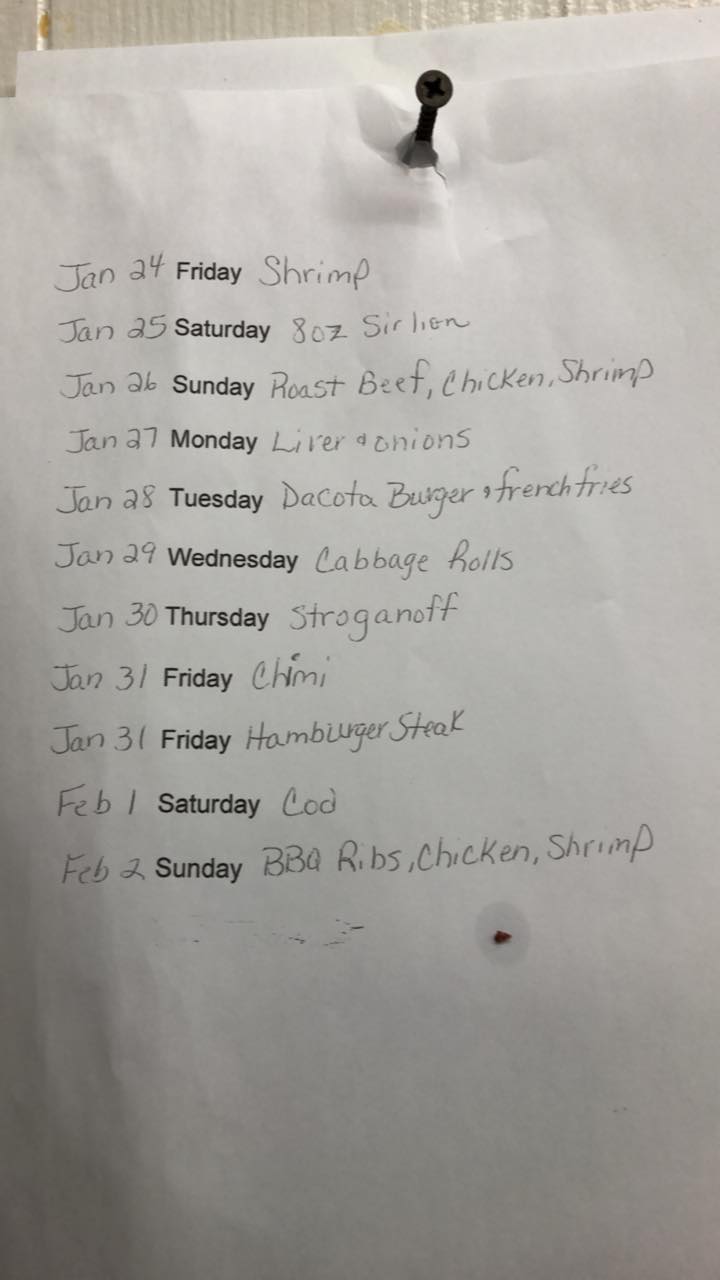 Jan 24 Friday Shrimp
Jan 25 Saturday 8oz Sirlion
Jan 26 Sunday Roast Beef, Chicken, Shrimp
Jan 27 Monday Liver & onions
Jan 28 Tuesday Dacota Burger & french fries
Jan 29 Wednesday Cabbage Rolls
Jan 30 Thursday Stroganoff
Jan 31 Friday Chimi
Jan 31 Friday Hamburger Steak
Feb 1 Saturday Cod
Feb 2 Sunday BBQ Ribs, Chicken, Shrimp